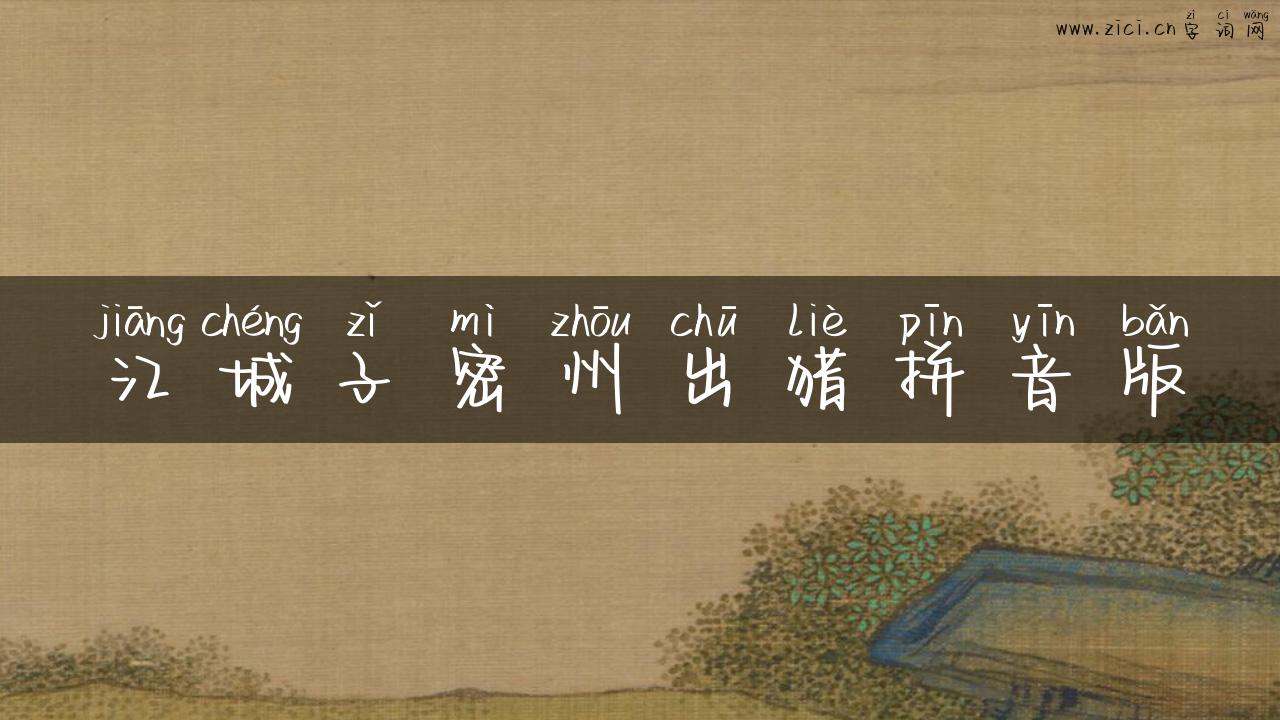 zì cí wǎng
www.zici.cn 字词网
jiāng chéng zǐ mì zhōu chū liè pīn yīn bǎn
江城子密州出猎拼音版